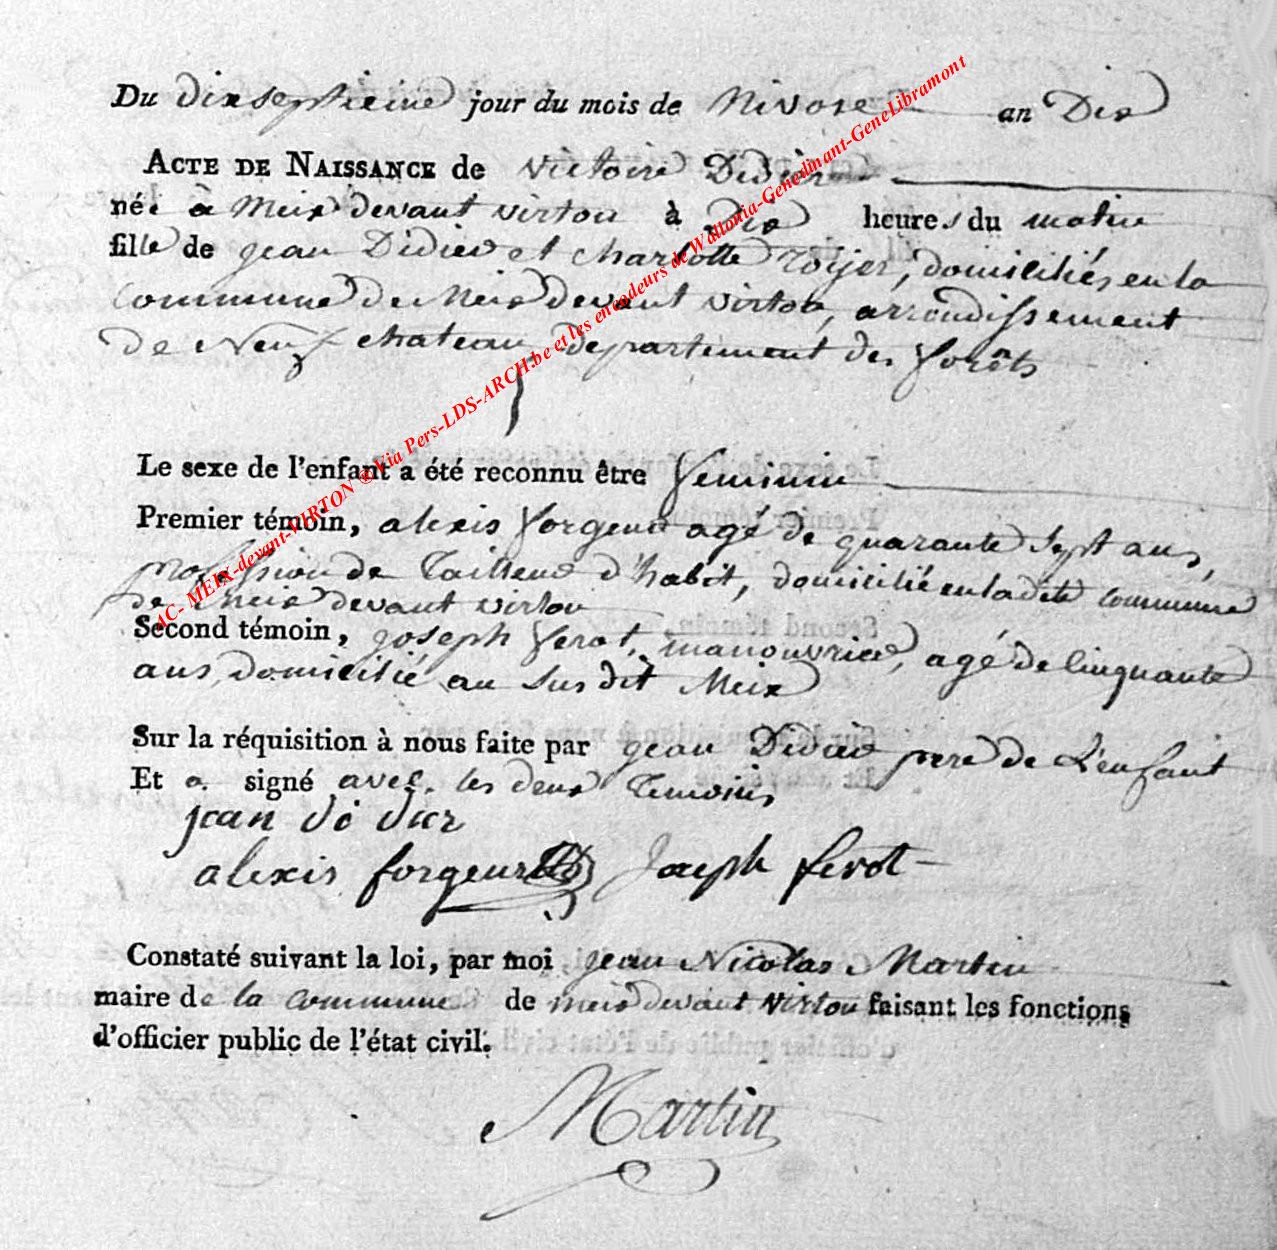 Du dixseptieme jour du mois de Nivose an Dix
ACTE DE NAISSANCE de Victoire Didier
née à Meix devant virton à Dix heures du matin
fille de jean Didier et charlotte royer, domiciliés en la
commune de Meix devant virton, arrondissement
de Neufchateau, departement des forêts
Le sexe de l'enfant a été reconnu être feminin
Premier témoin, alexis forgeur agé de quarante sept ans,
profession de Tailleur d'habit, domicilié en la dite commune
de Meix devant virton
Second témoin, joseph ferot, manouvrier, agé de cinquante
ans, domicilié au susdit Meix
Sur la réquisition à nous faite par jean Didier pere de L'enfant
Et a signé avec les deux Temoins
jean didier
alexis forgeur Joseph ferot
Constaté suivant la loi, par moi jean Nicolas Martin
maire de la commune de meix devant virton faisant les fonctions
d'officier public de l'état civil.
Martin
AC- MEIX-devant-VIRTON ® Via Pers-LDS-ARCH.be et les encodeurs de Wallonia-Genedinant-GeneLibramont